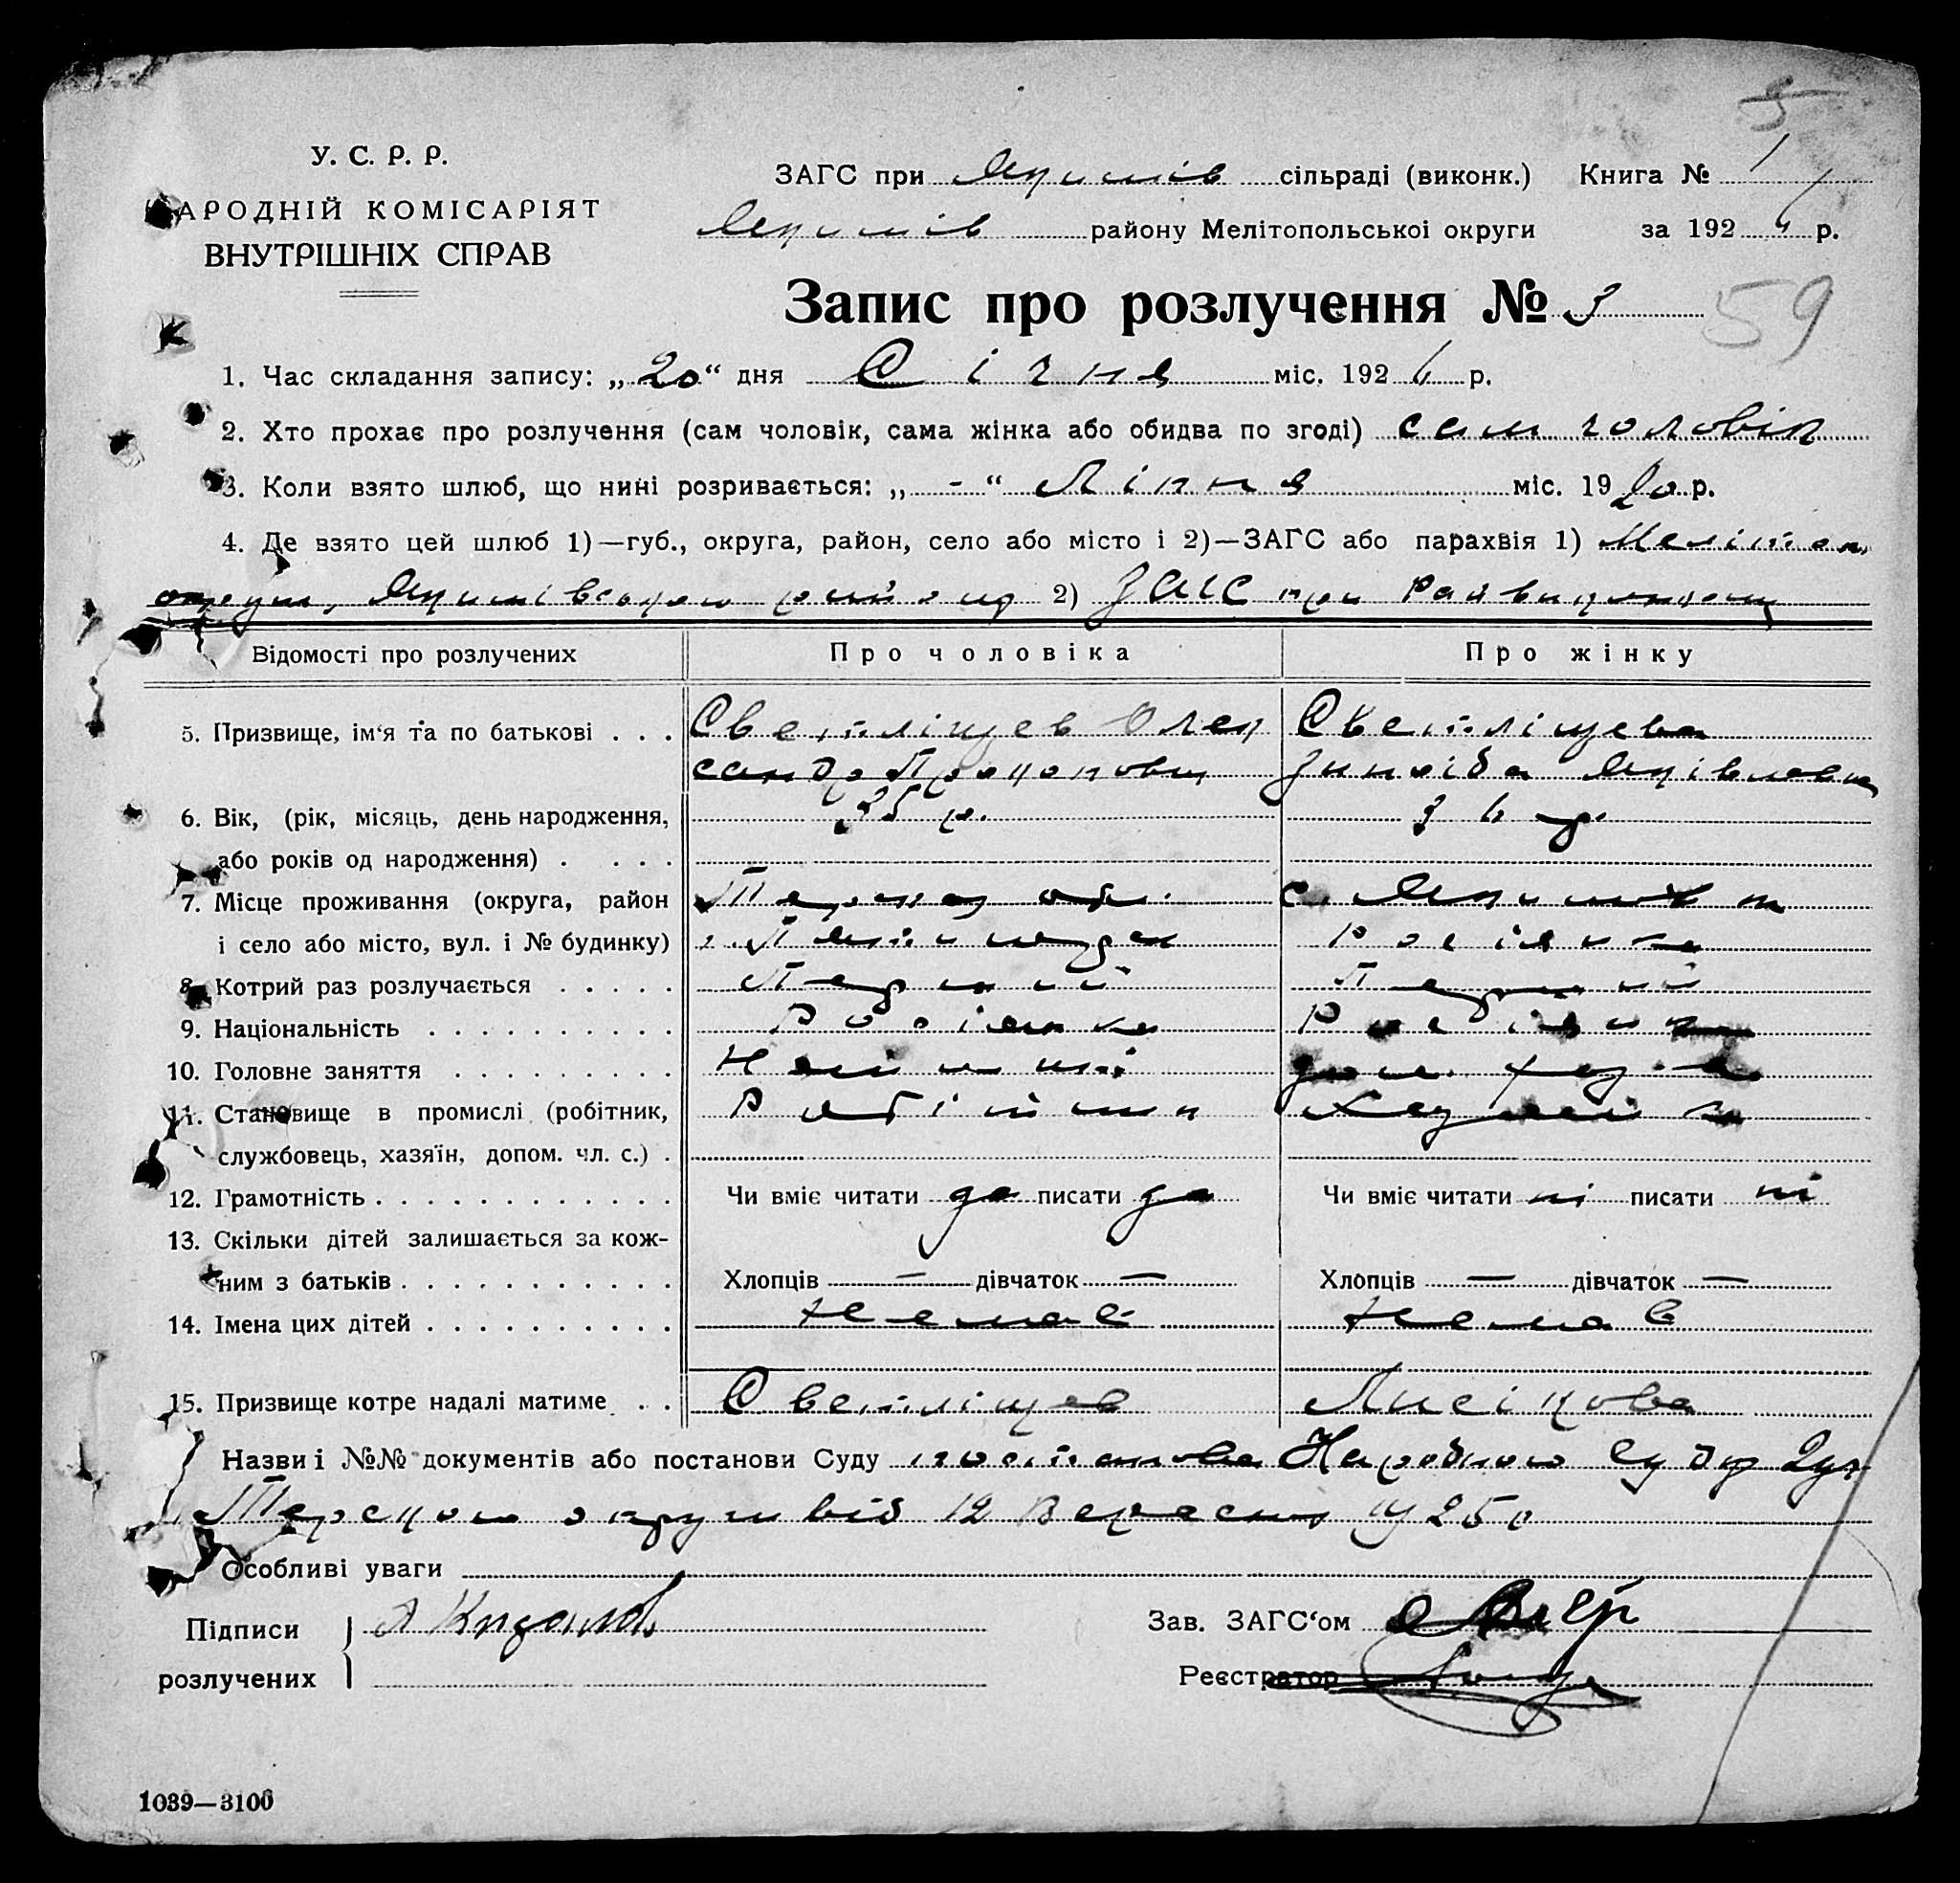 5
У. С. Р. Р.
АРОДНІЙ КОМІСАРІЯТ
ВНУТРІШНІХ СПРАВ
ЗАГС при Якимів сільраді (виконк.) Книга № 1
Якимів району Мелітопольської округи за 1926 р.
Запис про розлучення № 3
59
1. Час складання запису: „20“ дня Січня міс. 1926 р.
2. Хто прохає про розлучення (сам чоловік, сама жінка або обидва по згоді) сам чоловік
3. Коли взято шлюб, що нині розривається: „-“ Липня міс. 1920 р.
4. Де взято цей шлюб 1)—губ., округа, район, село або місто і 2)—ЗАГС або парахвія 1) Меліто
округи, Якимівського району 2) ЗАГС при Райвиконкому
Відомості про розлучених Про чоловіка Про жінку
5. Призвище, ім'я та по батькові . . . Светліщев Олек Светліщева
сандр Зинаіда
6. Вік, (рік, місяць, день народження, 35 р. 36 р.
або років од народження) . . . . .
7. Місце проживання (округа, район с. Якимовка
і село або місто, вул. і № будинку)
8. Котрий раз розлучається . . . . . Перший Перший
9. Національність . . . . . . . . . .
10. Головне заняття . . . . . . . . .
11. Становище в промислі (робітник, Робітник
службовець, хазяїн, допом. чл. с.) .
12. Грамотність . . . . . . . . . . . . Чи вміє читати да писати да Чи вміє читати ні писати ні
13. Скільки дітей залишається за кож-
ним з батьків . . . . . . . . . . . Хлопців — дівчаток — Хлопців — дівчаток —
14. Імена цих дітей . . . . . . . . . . Немає Немає
15. Призвище котре надалі матиме . . Светліщев Лисікова
Назви і №№ документів або постанови Суду постанова Народного Суду
Терского округи від 12 Вересня 1925 р
Особливі уваги
Підписи Зав. ЗАГС'ом
розлучених Реєстратор
1039—3100